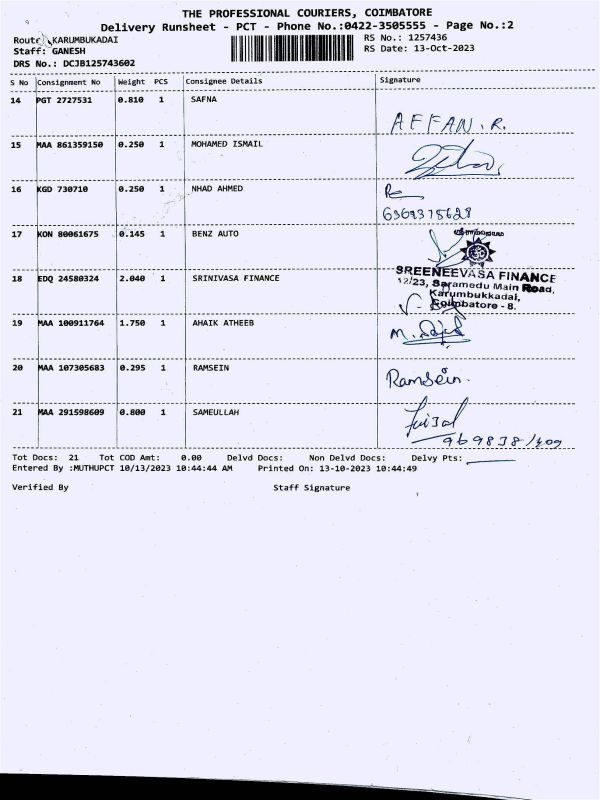 THE PROFESSIONAL COURIERS, COIMBATORE
Delivery Runsheet - PCT - Phone No.:0422-3505555 - Page No.:2
Route: KARUMBUKADAI
RS No.: 1257436
Staff: GANESH
RS Date: 13-Oct-2023
DRS No.: DCJB125743602
S No Consignment No Weight PCS Consignee Details Signature
14 PGT 2727531 0.810 1 SAFNA
AFFAN.R.
15 MAA 861359150 0.250 1 MOHAMED ISMAIL
16 KGD 730710 0.250 1 NHAD AHMED
6369315628
17 KON 80061675 0.145 1 BENZ AUTO
18 EDQ 24580324 2.040 1 SRINIVASA FINANCE
SREENEEVASA FINANCE
12/23, Saramedu Main Road,
Karumbukkadai,
Coimbatore - 8.
19 MAA 100911764 1.750 1 AHAIK ATHEEB
20 MAA 107305683 0.295 1 RAMSEIN
Ramsein.
21 MAA 291598609 0.800 1 SAMEULLAH
Faizal
Tot Docs: 21 Tot COD Amt: 0.00 Delvd Docs: Non Delvd Docs: Delvy Pts:
Entered By :MUTHUPCT 10/13/2023 10:44:44 AM Printed On: 13-10-2023 10:44:49
Verified By Staff Signature